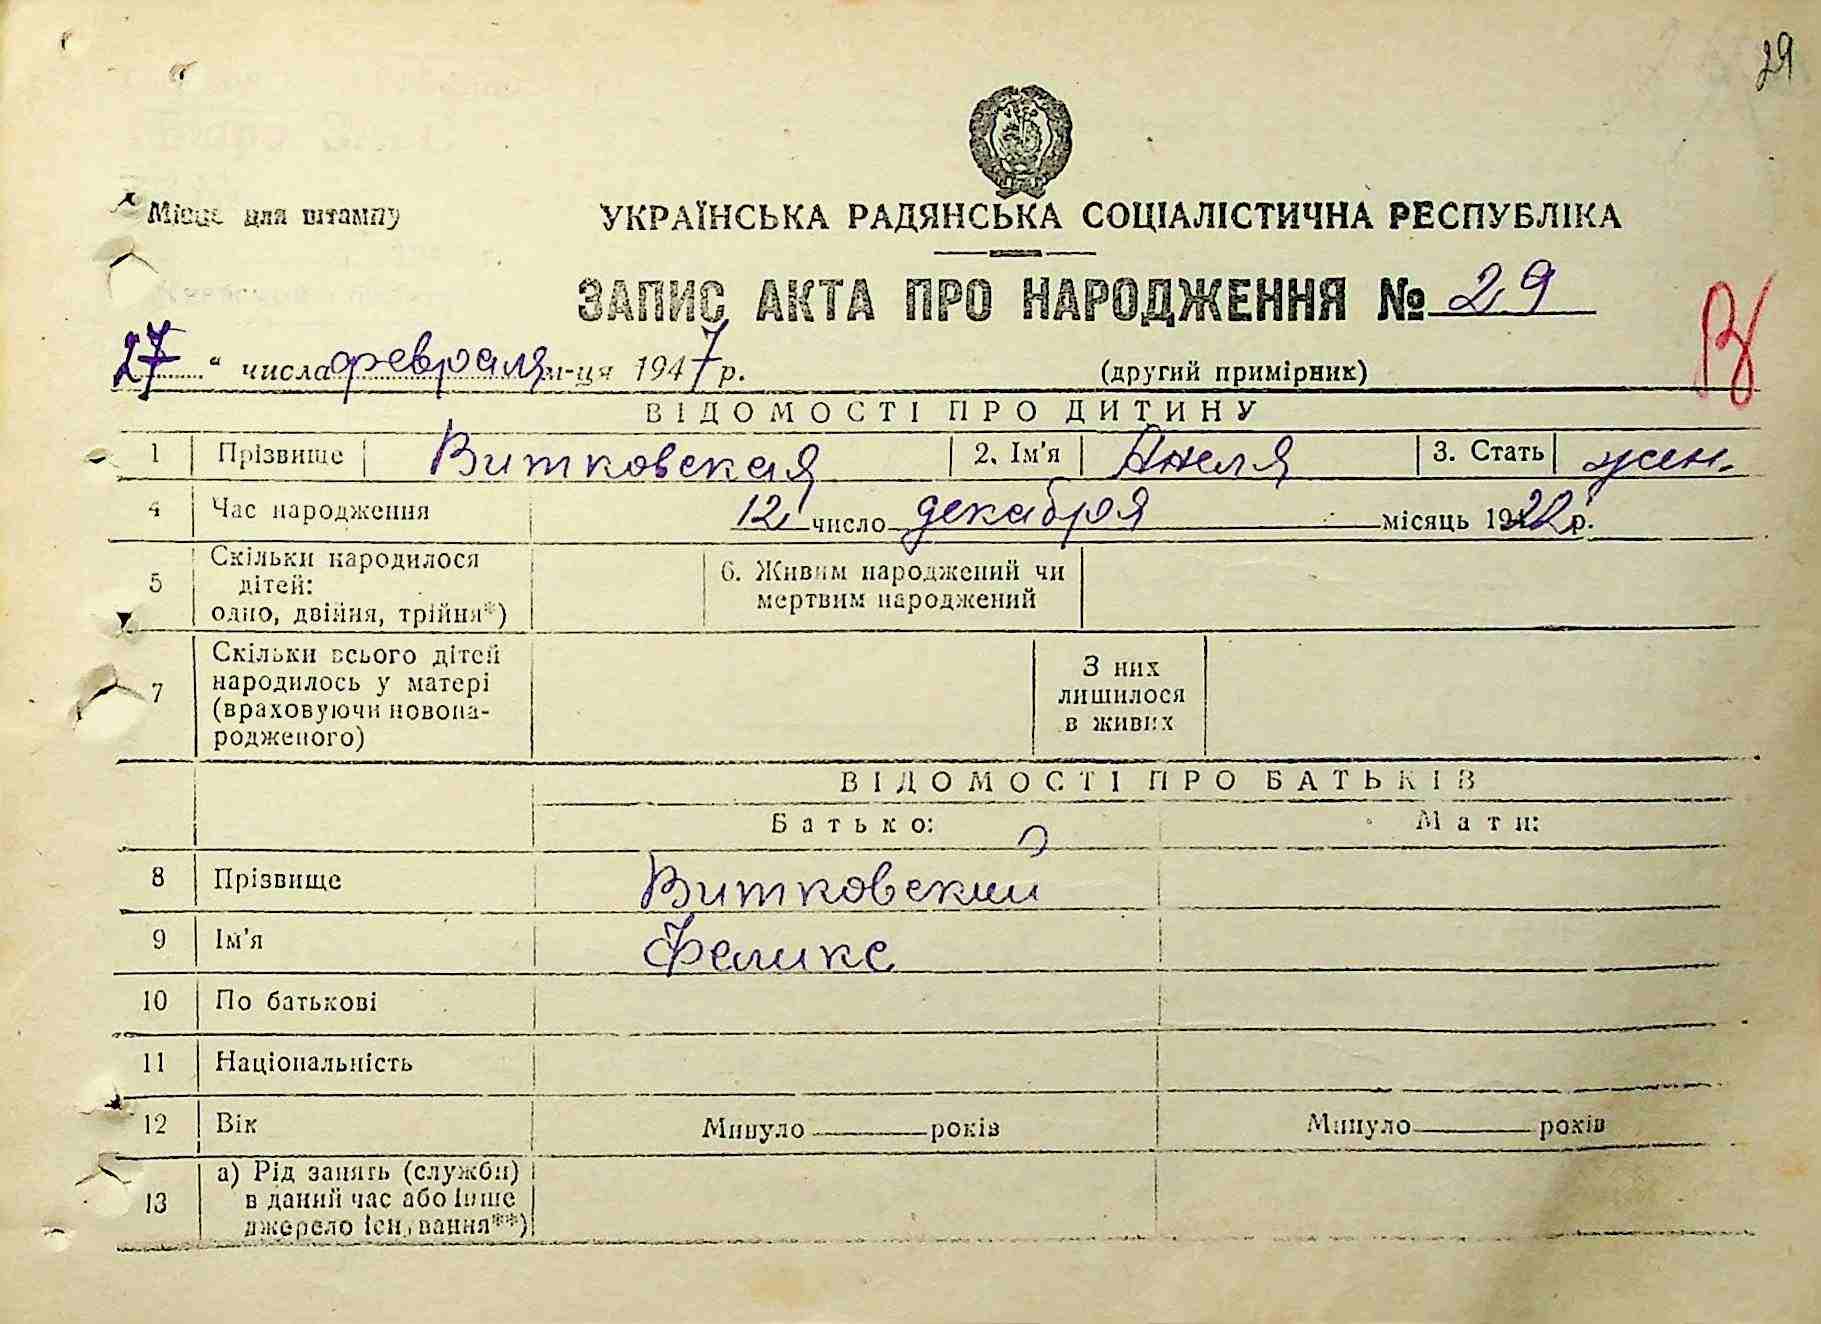 29
Місце для штампу
УКРАЇНСЬКА РАДЯНСЬКА СОЦІАЛІСТИЧНА РЕСПУБЛІКА
ЗАПИС АКТА ПРО НАРОДЖЕННЯ № 29
27 " числа февраля м-ця 1947 р. (другий примірник)
ВІДОМОСТІ ПРО ДИТИНУ
1 Прізвище Витковская 2. Ім'я Анеля 3. Стать жен.
4 Час народження 12 число декабря місяць 1922 р.
5 Скільки народилося дітей: одно, двійня, трійня*) 6. Живим народжений чи мертвим народжений
7 Скільки всього дітей народилось у матері (враховуючи новонародженого) З них лишилося в живих
ВІДОМОСТІ ПРО БАТЬКІВ
Батько: Мати:
8 Прізвище Витковский
9 Ім'я Феликс
10 По батькові
11 Національність
12 Вік Минуло років Минуло років
13 а) Рід занять (служби) в даний час або інше джерело існування**)